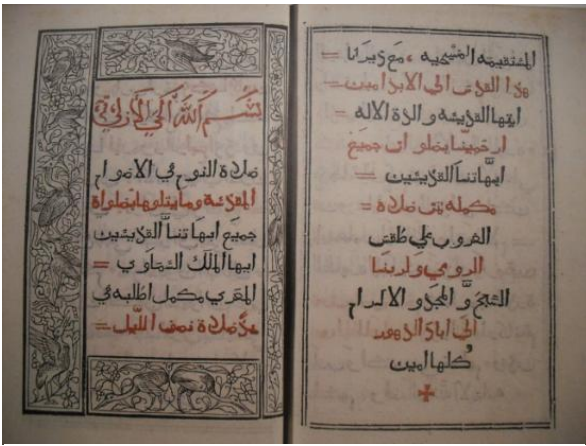 المستقيمه المسيحيه ، مع
هذا القدس الي الابد امين =
ايتها القديسه والدة الاله =
ارحمينا بصلوات جميع
ابهاتنا القديسين =
مكمله تمت صلاة =
الغروب علي طقس
الرومي ولربنا
السبح و المجد و الاكرام
الي اباد الدهور
كلها امين
بسم الله الحي الازلي
صلاة النوم في الاصوام
المقدسة وما يتلوها بصلواة
جميع ابهاتنا القديسين
ايها الملك السماوي =
المقري مكمل اطلبه في
صلاة نصف الليل =